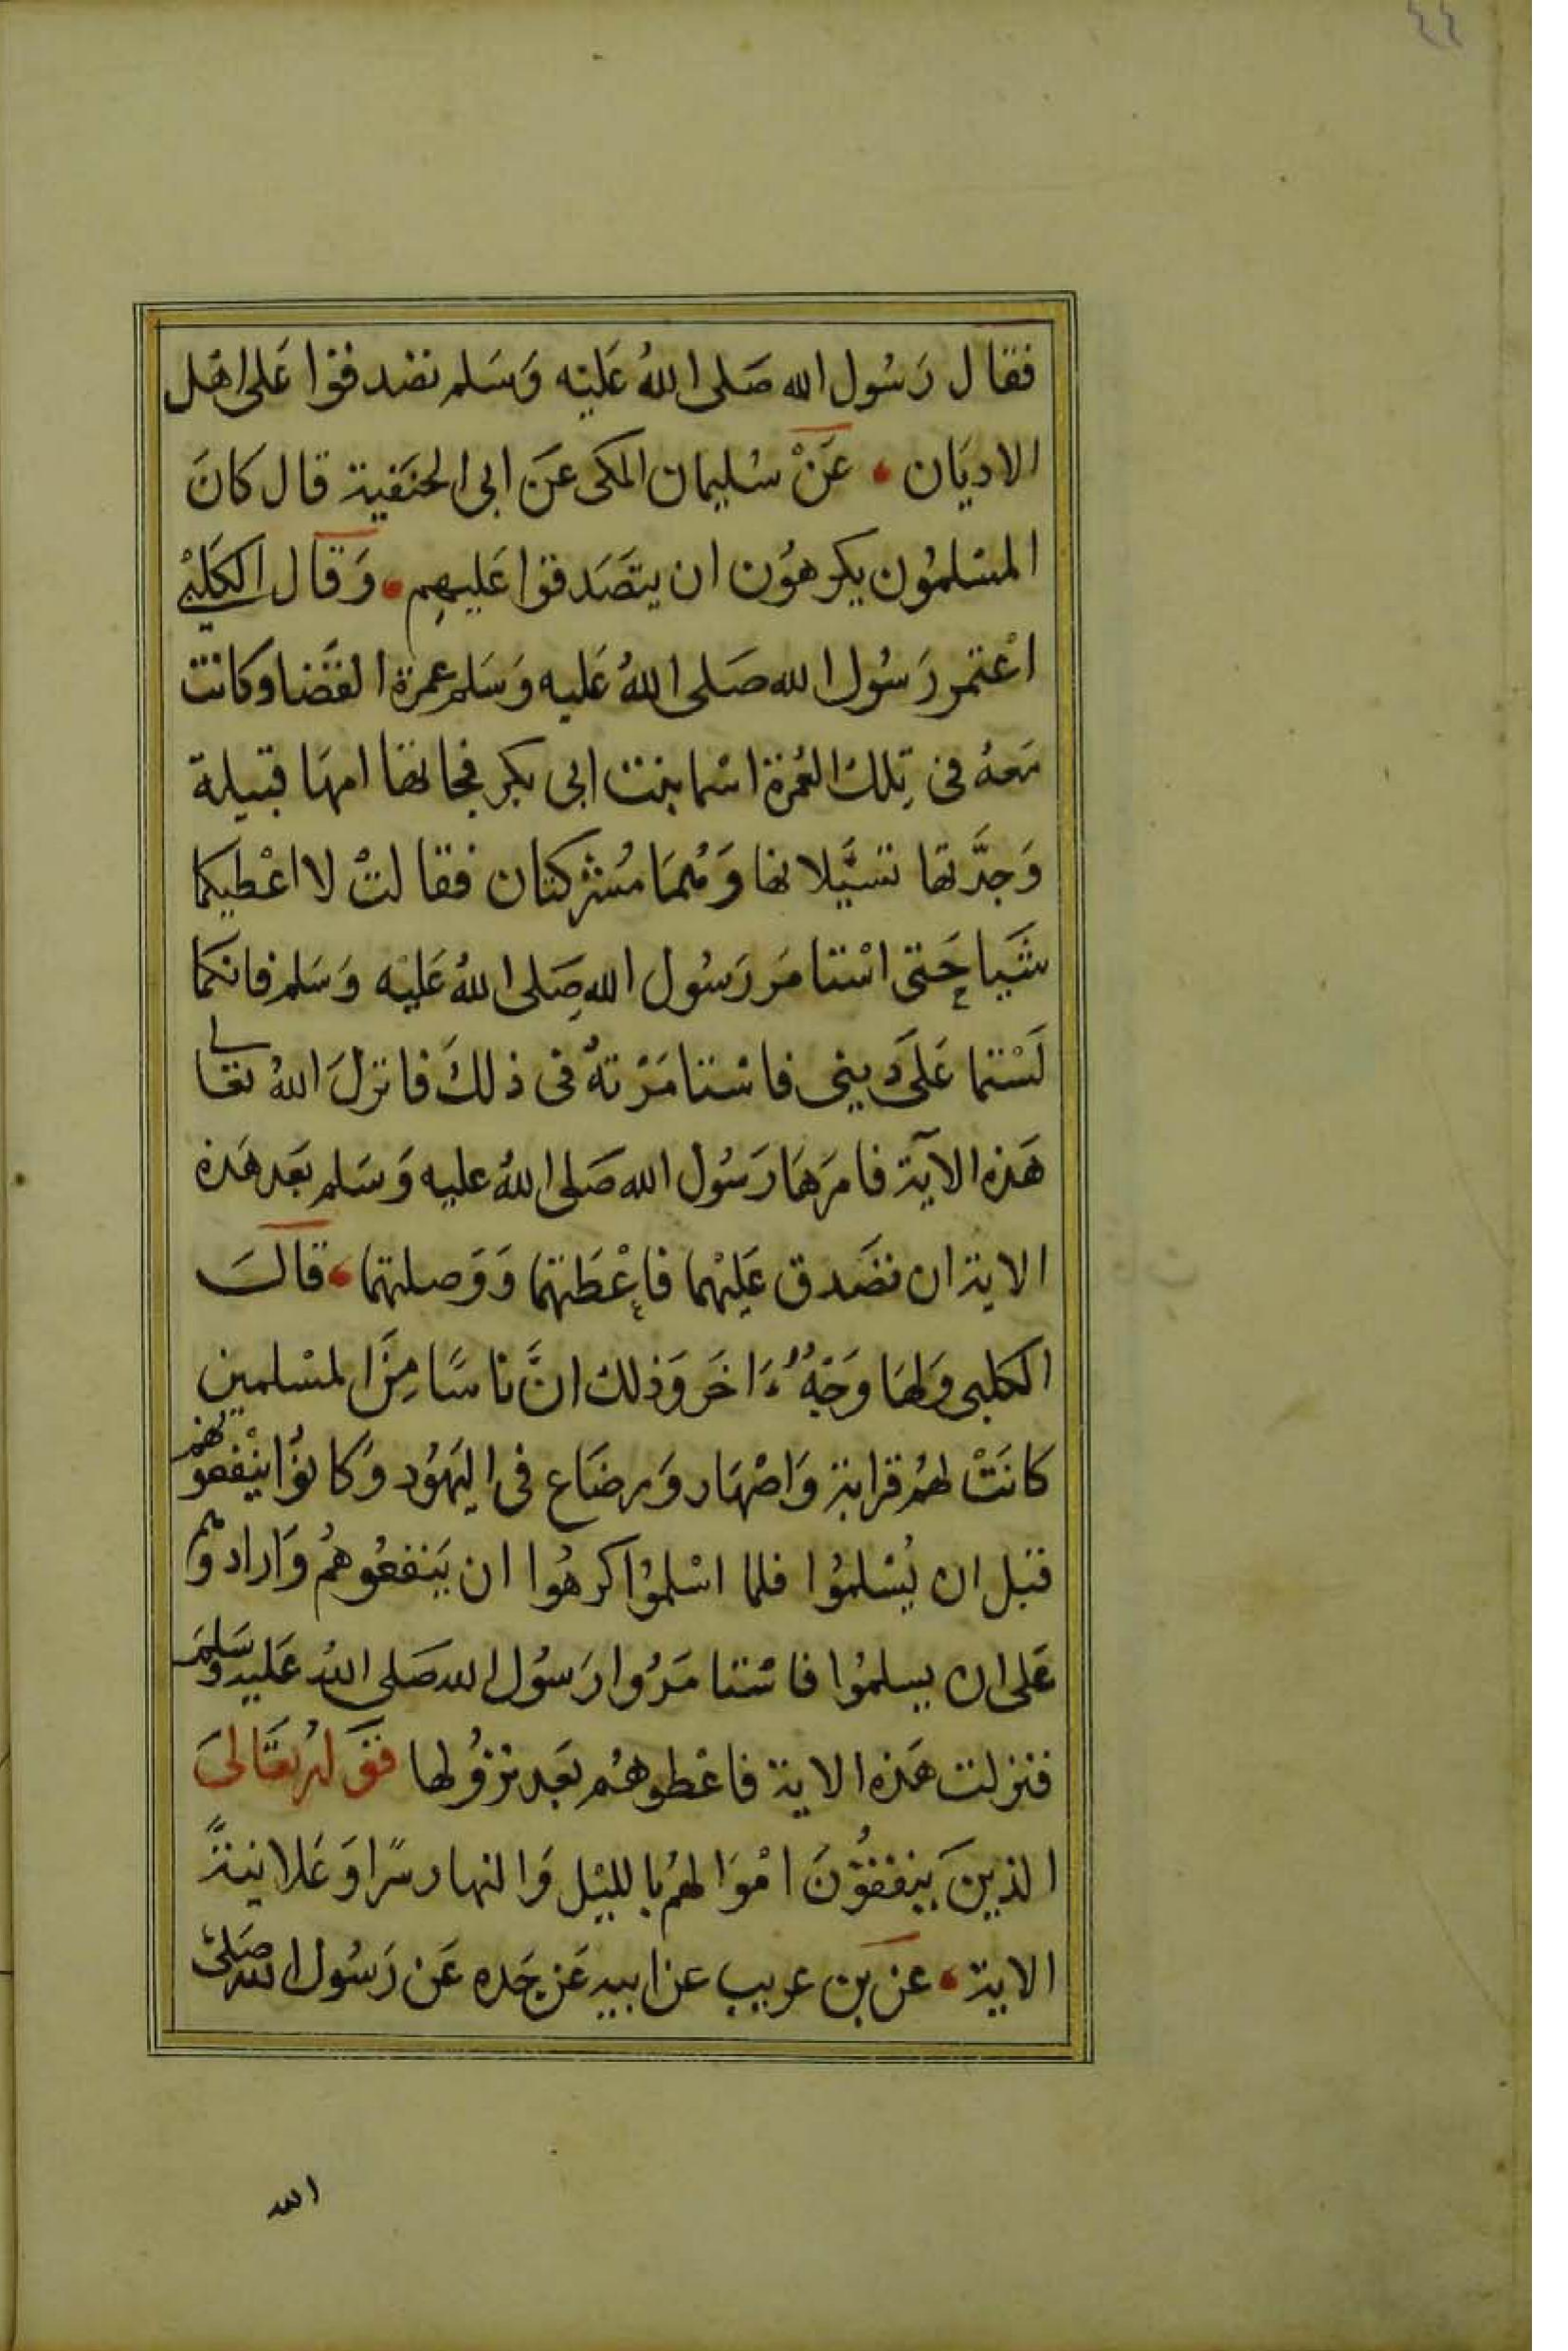 ٤٤
فقال رَسُول الله صَلى اللهُ عَليْه وَسَلم تصَدقوا عَلى اهْل
الاديَان عَنْ سُليمان المكى عَن ابى الحنَفية قال كانَ
المسْلمُون يكرهوُن ان يتَصَدقوا عَليهِم وَقال الكَلبْي
اعْتمر رَسُول الله صَلى اللهُ عَليه وَسَلم عمرة القضَا وكانت
مَعهُ فى تِلك العُمرة اسْما بنت ابى بكر فجاتها امهَا قتيلة
وَجدَّتها تسَيَّلانها وَهُمَا مُشركتان فقالتْ لا اعْطيكما
شَيا حَتى اسْتامَر رَسُول الله صَلى اللهُ عَليْه وَسَلم فانكما
لَسْتما عَلَى دينى فاسْتامَرْتهُ فى ذلكَ فانزلَ اللهُ تعَالى
هَذه الآية فامرَهَا رَسُول الله صَلى اللهُ عليه وَسَلم بعَد هَذه
الاية ان تصَدق عَليْهما فاعْطَتهما وَوَصلتهما قالَ
الكلبى وَلهَا وَجْهٌ ءَاخَر وَذلك انَّ ناسًا مِنَ المسْلمين
كانَتْ لهُم قرابة وَاصْهَار وَرضَاع فى اليَهوُد وَكانوُا ينْفعونهم
قبل ان يُسْلموُا فلما اسْلموُا كرهُوا ان يَنفعُوهُم وَارادوهم
عَلى ان يسلموُا فاسْتامَرُوا رَسُول الله صَلى اللهُ عَليه وسَلم
فنزلت هَذه الاية فاعْطوهُم بَعد نزوُلها قَولهُ تعَالىَ
الذينَ ينفقوُنَ امْوَالهُم بالليْل وَالنهار سرًا وَعَلانيةً
الاية عَن بن عريب عن ابيه عَن جَده عَن رَسُول الله صَلى
الله